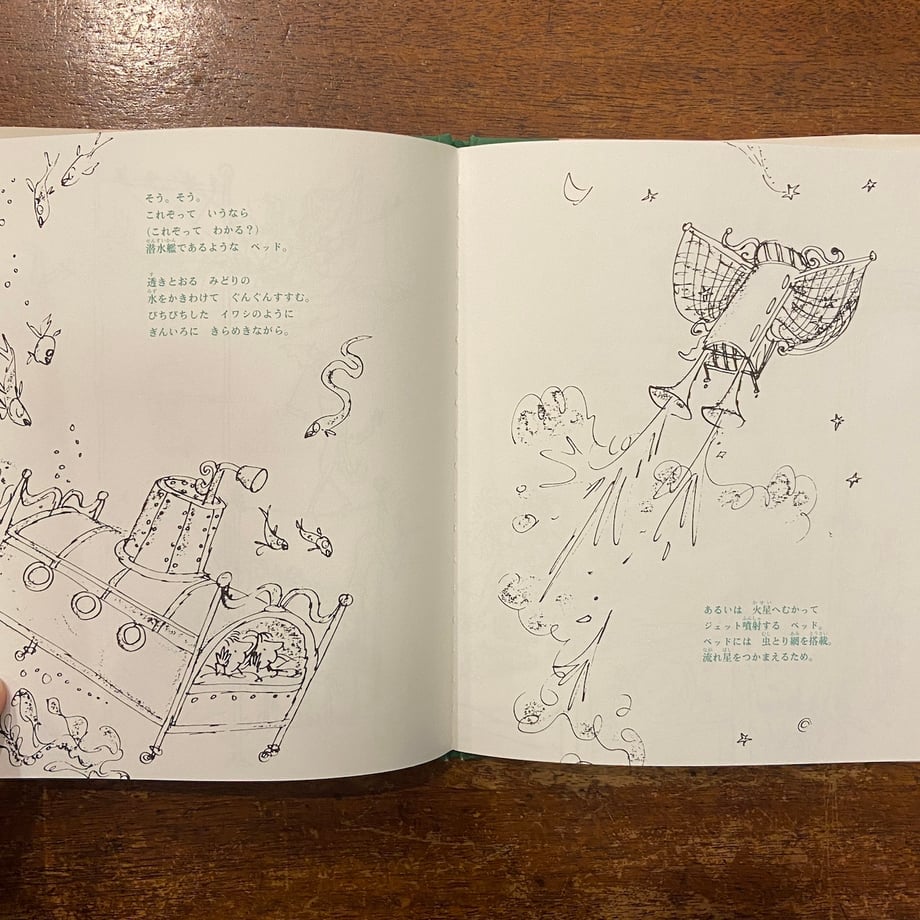 そう。そう。
これぞって　いうなら
(これぞって　わかる？)
潜水艦であるような　ベッド。
透きとおる　みどりの
水をかきわけて　ぐんぐんすすむ。
ぴちぴちした　イワシのように
ぎんいろに　きらめきながら。
あるいは　火星へむかって
ジェット噴射する　ベッド。
ベッドには　虫とり網を搭載。
流れ星をつかまえるため。